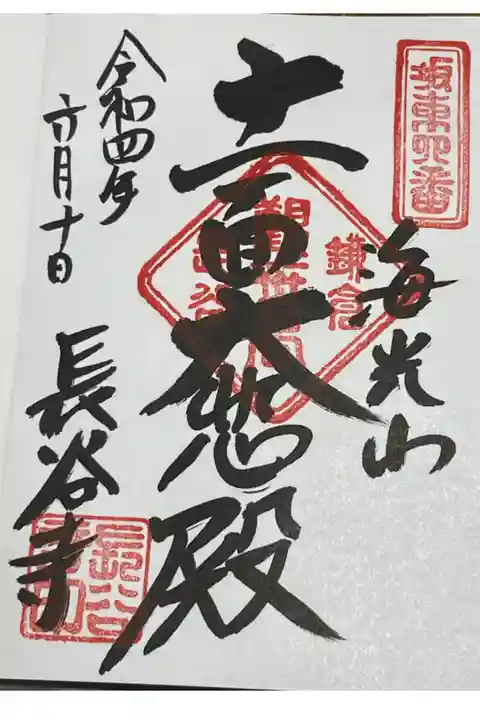 坂東四番
海光山
十一面大悲殿
鎌倉
観世音
長谷
令和四年
六月十日
長谷寺